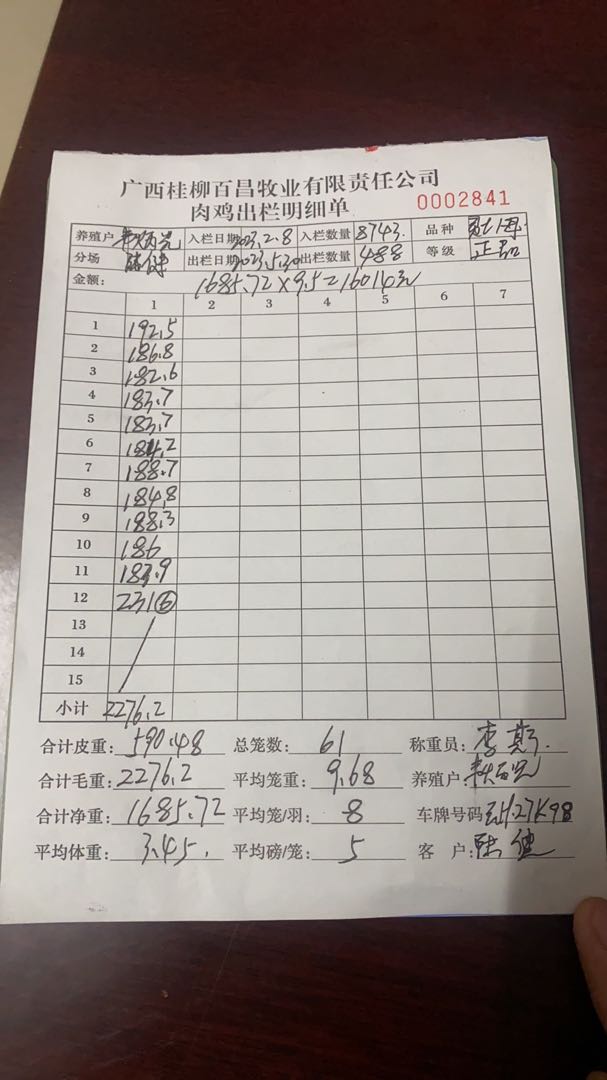 广西桂柳百昌牧业有限责任公司
肉鸡出栏明细单 0002841
养殖户 入栏日期 2023.2.8 入栏数量 8743. 品种
分场 陆健 出栏日期 2023.5.30 出栏数量 488 等级 正品
金额: 1685.72×9.5=16014元
1 2 3 4 5 6 7
1 192.5
2 186.8
3 182.6
4 183.7
5 183.7
6 184.2
7 188.7
8 184.8
9 188.3
10 186
11 183.9
12 231⑥
13
14
15
小计 2276.2
合计皮重: 590.48 总笼数: 61 称重员: 李斯.
合计毛重: 2276.2 平均笼重: 9.68 养殖户:
合计净重: 1685.72 平均笼/羽: 8 车牌号码
平均体重: 3.45. 平均磅/笼: 5 客户: 陆健